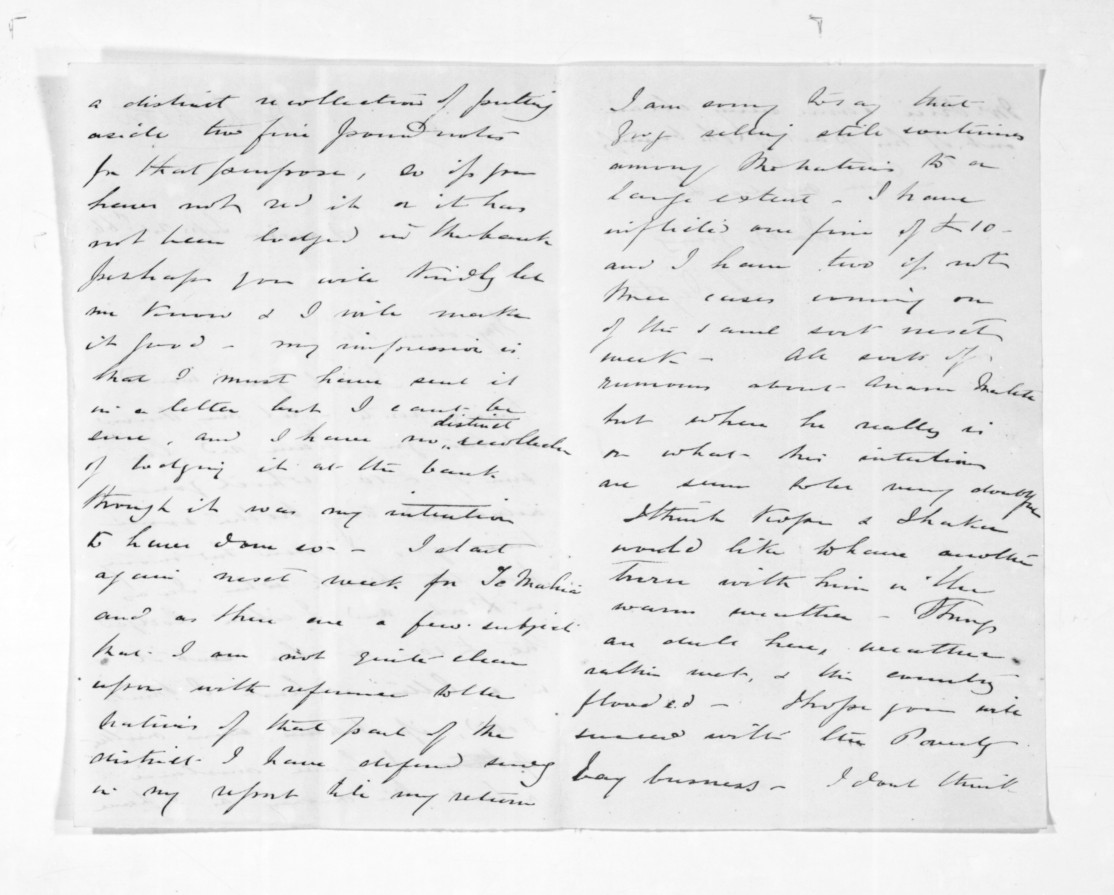 a distinct recollection of putting
aside two five pound notes
for that purpose, so if you
have not recd it or it has
not been lodged in the bank
perhaps you will kindly let
me know & I will make
it good - my impression is
that I must have sent it
in a letter but I cant be
sure, and I have no distinct recollection
of lodging it at the bank
though it was my intention
to have done so - I start
again next week for Te Mahia
and as there are a few subjects
that I am not quite clear
upon with reference to the
natives of that part of the
district I have defered sending
in my report till my return
I am sorry to say that
Grog selling still continues
among the natives to a
large extent - I have
inflicted one fine of £10 -
and I have two if not
three cases coming on
of the same sort next
week - All sorts of
rumours about Anaru Matete
but where he really is
or what his intentions
are seem to be very doubtful
I think Kopu & Ihaka
would like to have another
turn with him in the
warm weather - Things
are dull here, weather
rather wet, & the country
flooded - I hope you will
succeed with the Poverty
bay business - I dont think